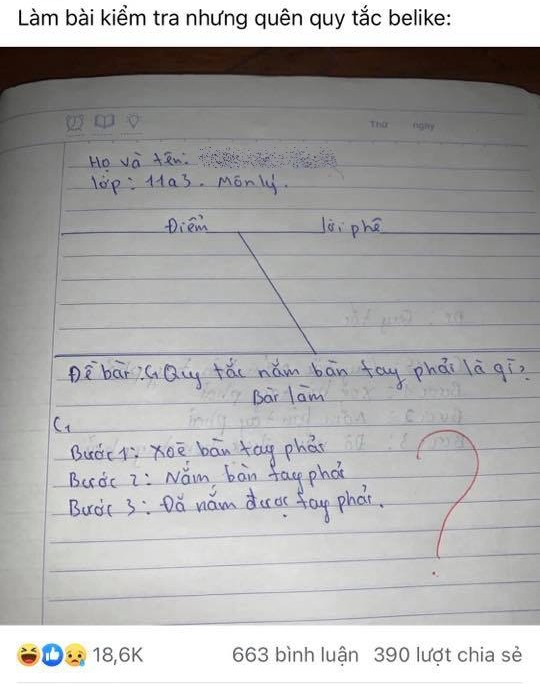 Làm bài kiểm tra nhưng quên quy tắc belike:
Thứ ngày
Họ và tên:
lớp: 11a3. Môn lý.
Điểm lời phê
Đề bài: C1 Quy tắc nắm bàn tay phải là gì?
Bài làm
C1
Bước 1: Xoè bàn tay phải
Bước 2: Nắm bàn tay phải
Bước 3: Đã nắm được tay phải.
?
18,6K 663 bình luận 390 lượt chia sẻ